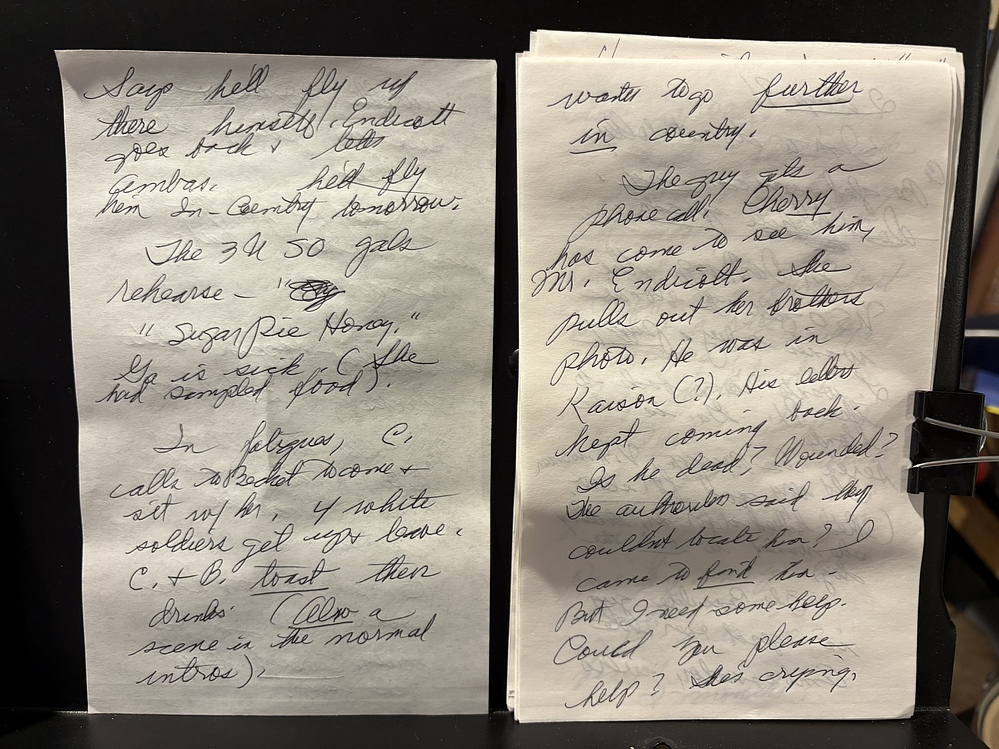 Says he'll fly up
there himself. Endicott
goes back & tells
Ambas. he'd fly
him In-Country tomorrow.
The 3 USO gals
rehearse - "
"Sugar Pie Honey."
Ga is sick. (She
had sampled food).
In fatigues, C.
calls to Becket to come &
set w/ her, 4 white
soldiers get up & leave.
C. & B. toast their
drinks (Also a
scene in the normal
intros).
wants to go further
in country.
The guy gets a
phone call. Cherry
has come to see him,
Mr. Endicott. She
pulls out her brothers
photo. He was in
(?). His letters
kept coming back.
Is he dead? Wounded?
The authorities said they
couldn't locate him? I
came to find him -
But I need some help.
Could you please
help? She's crying.